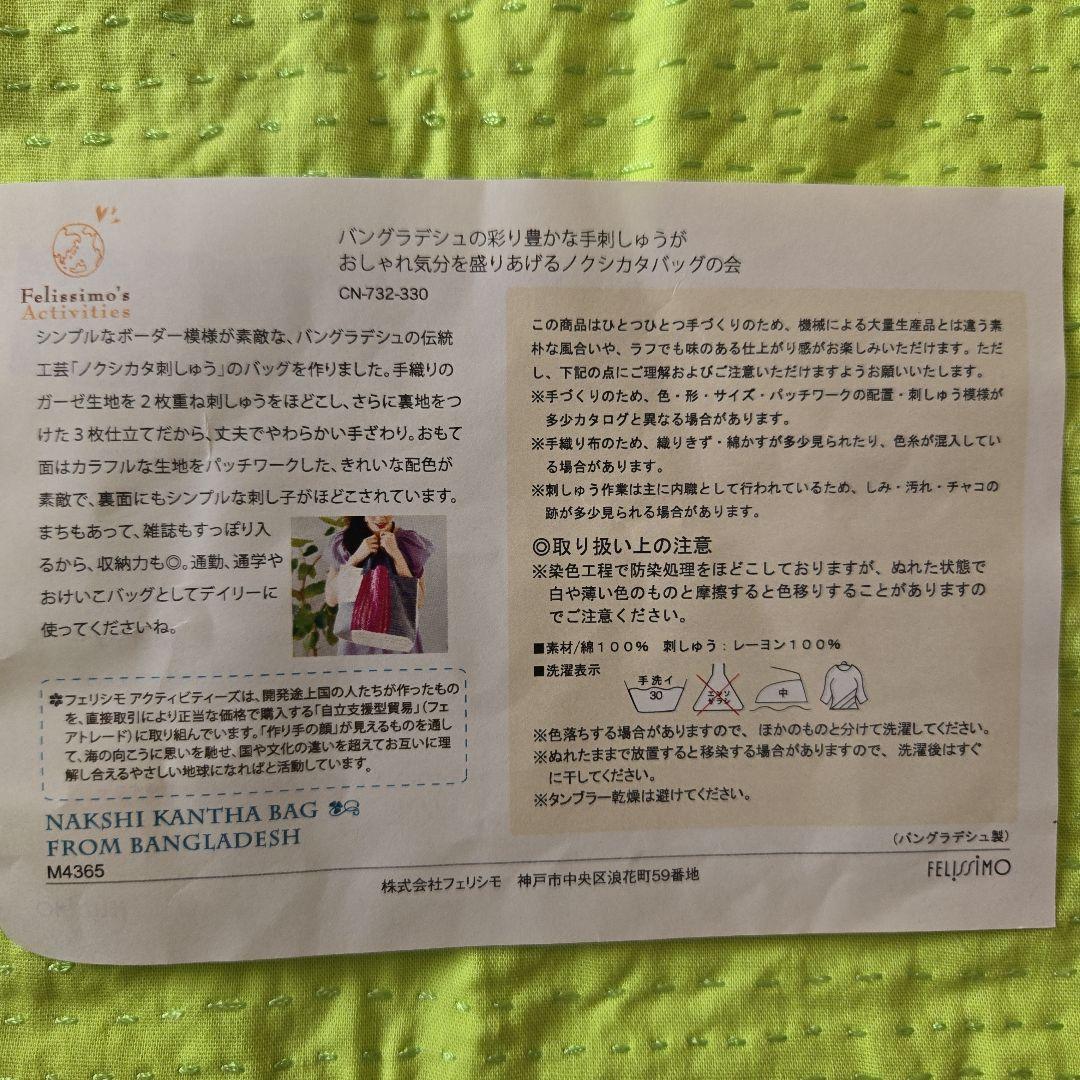 Felissimo's
Activities
バングラデシュの彩り豊かな手刺しゅうが
おしゃれ気分を盛りあげるノクシカタバッグの会
CN-732-330
シンプルなボーダー模様が素敵な、バングラデシュの伝統
工芸「ノクシカタ刺しゅう」のバッグを作りました。手織りの
ガーゼ生地を２枚重ね刺しゅうをほどこし、さらに裏地をつ
けた３枚仕立てだから、丈夫でやわらかい手ざわり。おもて
面はカラフルな生地をパッチワークした、きれいな配色が
素敵で、裏面にもシンプルな刺し子がほどこされています。
まちもあって、雑誌もすっぽり入
るから、収納力も◎。通勤、通学や
おけいこバッグとしてデイリーに
使ってくださいね。
✽フェリシモ アクティビティーズは、開発途上国の人たちが作ったもの
を、直接取引により正当な価格で購入する「自立支援型貿易」(フェ
アトレード)に取り組んでいます。「作り手の顔」が見えるものを通し
て、海の向こうに思いを馳せ、国や文化の違いを超えてお互いに理
解し合えるやさしい地球になればと活動しています。
NAKSHI KANTHA BAG
FROM BANGLADESH
M4365
この商品はひとつひとつ手づくりのため、機械による大量生産品とは違う素
朴な風合いや、ラフでも味のある仕上がり感がお楽しみいただけます。ただ
し、下記の点にご理解およびご注意いただけますようお願いいたします。
※手づくりのため、色・形・サイズ・パッチワークの配置・刺しゅう模様が
多少カタログと異なる場合があります。
※手織り布のため、織りきず・綿かすが多少見られたり、色糸が混入してい
る場合があります。
※刺しゅう作業は主に内職として行われているため、しみ・汚れ・チャコの
跡が多少見られる場合があります。
◎取り扱い上の注意
※染色工程で防染処理をほどこしておりますが、ぬれた状態で
白や薄い色のものと摩擦すると色移りすることがありますの
でご注意ください。
■素材/綿１００％ 刺しゅう：レーヨン１００％
■洗濯表示
手洗イ
30
エンソ
サラシ
中
※色落ちする場合がありますので、ほかのものと分けて洗濯してください。
※ぬれたままで放置すると移染する場合がありますので、洗濯後はすぐ
に干してください。
※タンブラー乾燥は避けてください。
(バングラデシュ製)
株式会社フェリシモ 神戸市中央区浪花町59番地
FELISSIMO